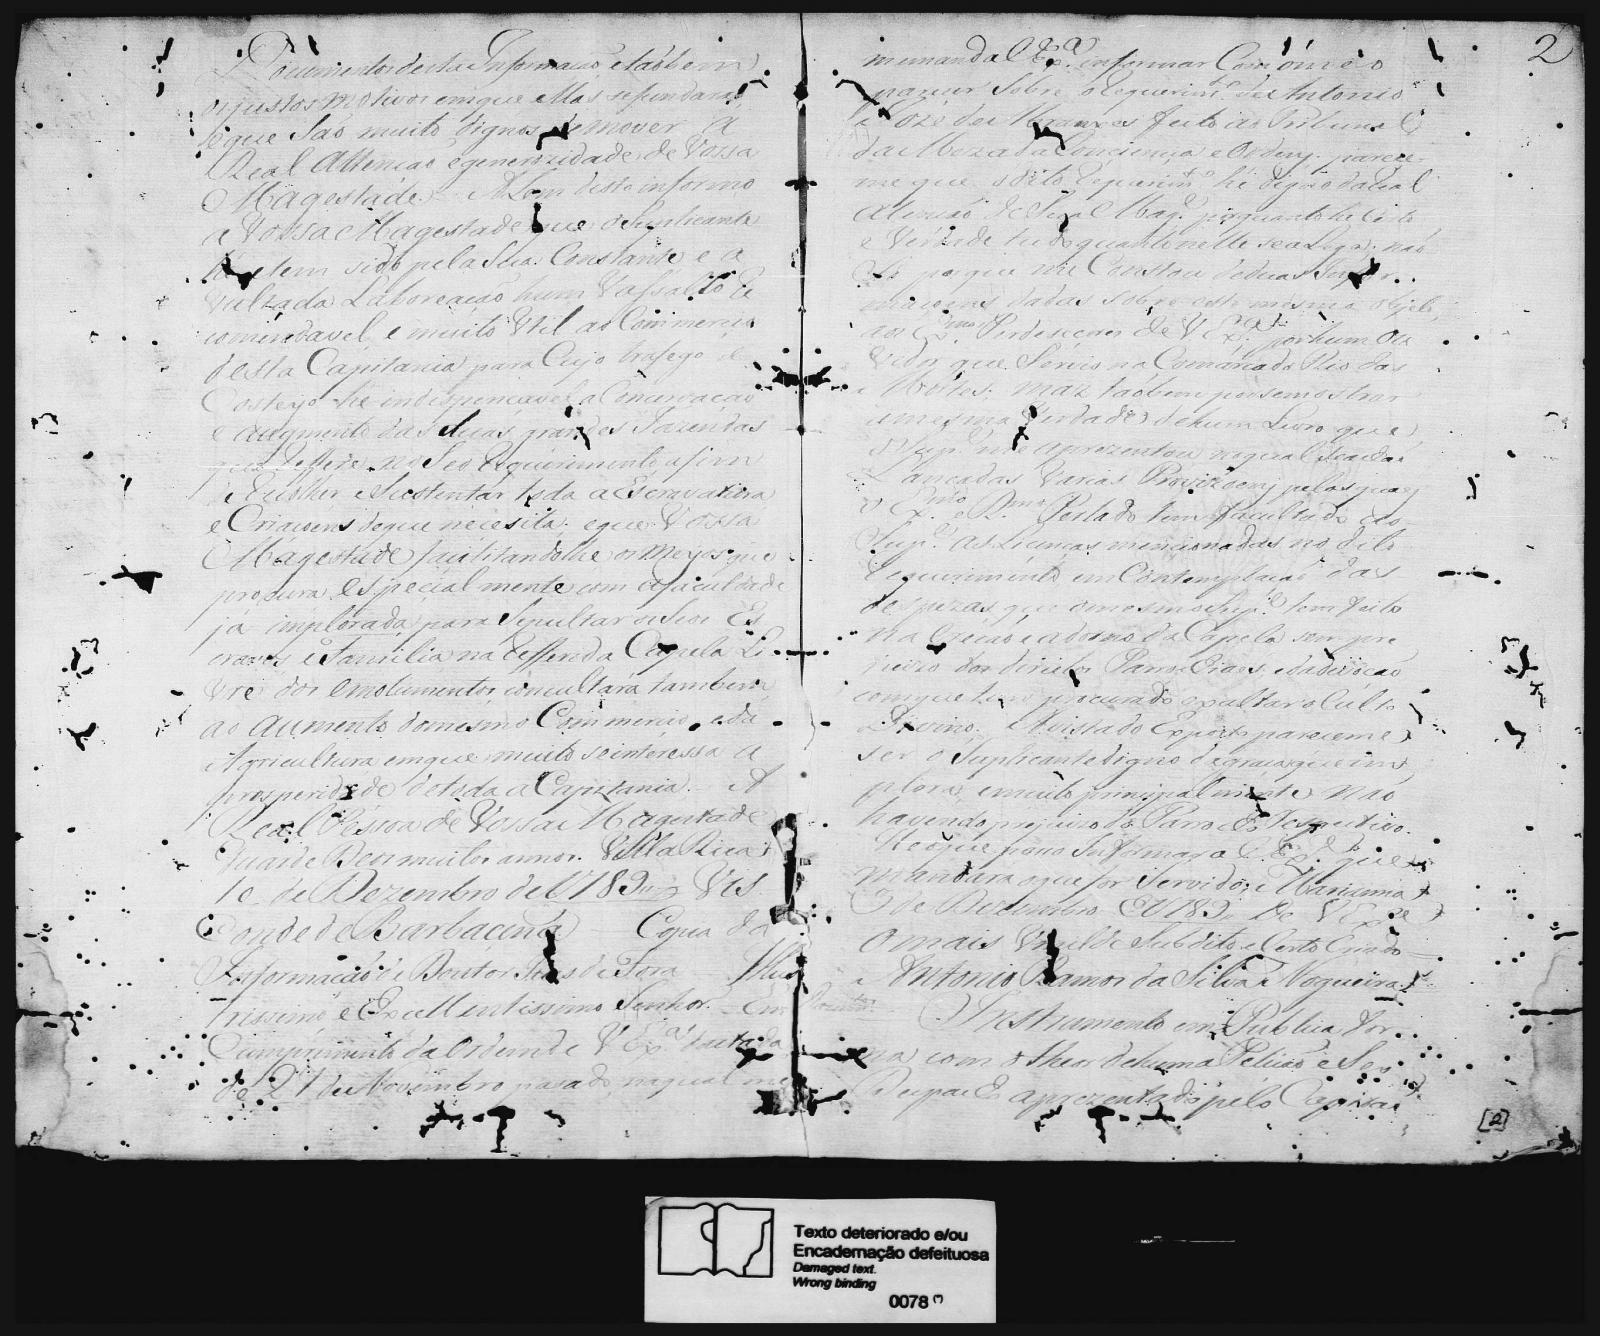 Documentos desta Informação etãobem
os justos motivos em que ellas se fundarão
e que São muito dignos de mover a
Real Attenção e generozidade de Vossa
Magestade. Alem disto informo
a Vossa Magestade que o Suplicante
tem sido pela Sua Constante e a
Laboreação hum Vassallo Re
comendavel, e muito Util ao Commercio
desta Capitania para Cujo trafego e
Costeyo he indispencavel a Concervação
e augmento das Suas grandes Fazendas
que Reffere no Seo Requerimento, afim
de Recolher e Sustentar toda a Escravatura
e Criaçoens de que necesita. e que Vossa
Magestade facilitandolhe os meyos que
procura Especialmente com a faculdade
já implorada para Sepultar os Seos Es
cravos e Familia na Refferida Capela Li
vre dos emolumentos rezultará tambem
ao aumento do mesmo Commercio, e da
Agricultura em que muito se interessa a
prosperidade de toda a Capitania. A
Real Pessoa de Vossa Magestade
Guarde Deos muitos annos. Villa Rica
10 de Dezembro de 1789 Vis
Conde de Barbacena Copia da
Informação do Doutor Juis de Fora Illus
trissimo e Excellentissimo Senhor. Em
Cumprimento da Ordem de V Exª datada
de 21 de Novembro pasado, na qual me
2
me manda V Exª informar Com o meo
parecer Sobre o Requerimto de Antonio
e Jozé de feito ao Tribunal
da Meza da Conciencia e Ordens. parece
me que o dito Requerimto hé digno da Real
Atenção de Sua Magᵉ porquanto he Certo
e Verdade tudo quanto nelle se alega; não
Só porque me Constou de duas Infor
maçoens dadas sobre este mesmo objeto
aos Exmos Predecesores de V Exª por hum Ou
vidor que Servio na Comarca do Rio das
Mortes. maz tãobem por se mostrar
a mesma Verdade de hum Livro que
o Supᵉ me aprezentou no qual
Lançadas Varias Provizoens pelas quaes
o Exmo e Rmo Prelado tem facultado ao
Supᵉ as Licenças mencionadas no dito
Requerimento em Contemplação das
despezas que o mesmo Supᵉ tem feito
na Ereção e adorno da Capela sem pre
juizo dos direitos Parochiaes, e da devoção
com que tem procurado exaltar o Culto
Divino. Avista do Exposto pareceme
ser o Suplicante digno da graça que im
plora, e muito principalmente não
havendo prejuizo do Parocho respectivo.
He o que poso Informar a V. Exª que
mandará o que for Servido. Marianna
5 de Dezembro de 1789 De V Exª
O mais Umilde Subdito e Certo Criado
Antonio Ramos da Silva Nogueira.
Instrumento em Publica For
ma com o theor de huma Petição e Ses
que e aprezentados pelo Capitão
[2]
Texto deteriorado e/ou
Encadernação defeituosa
Damaged text.
Wrong binding
0078